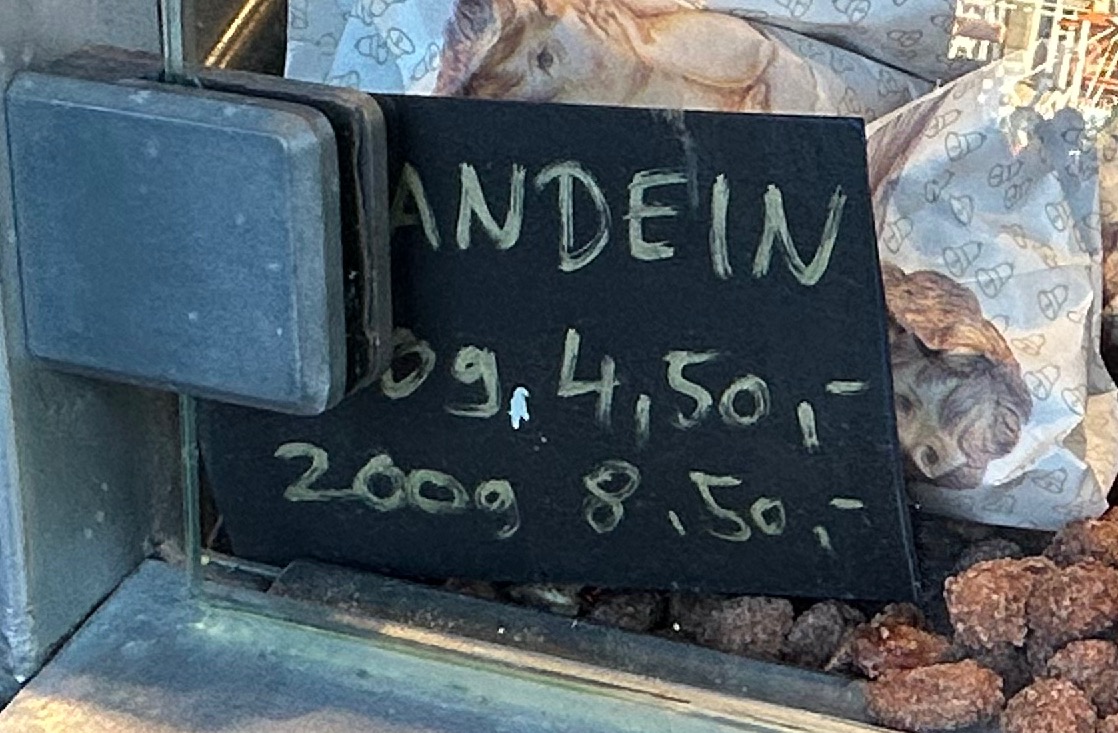 ANDEIN
0g, 4,50,-
200g 8,50,-